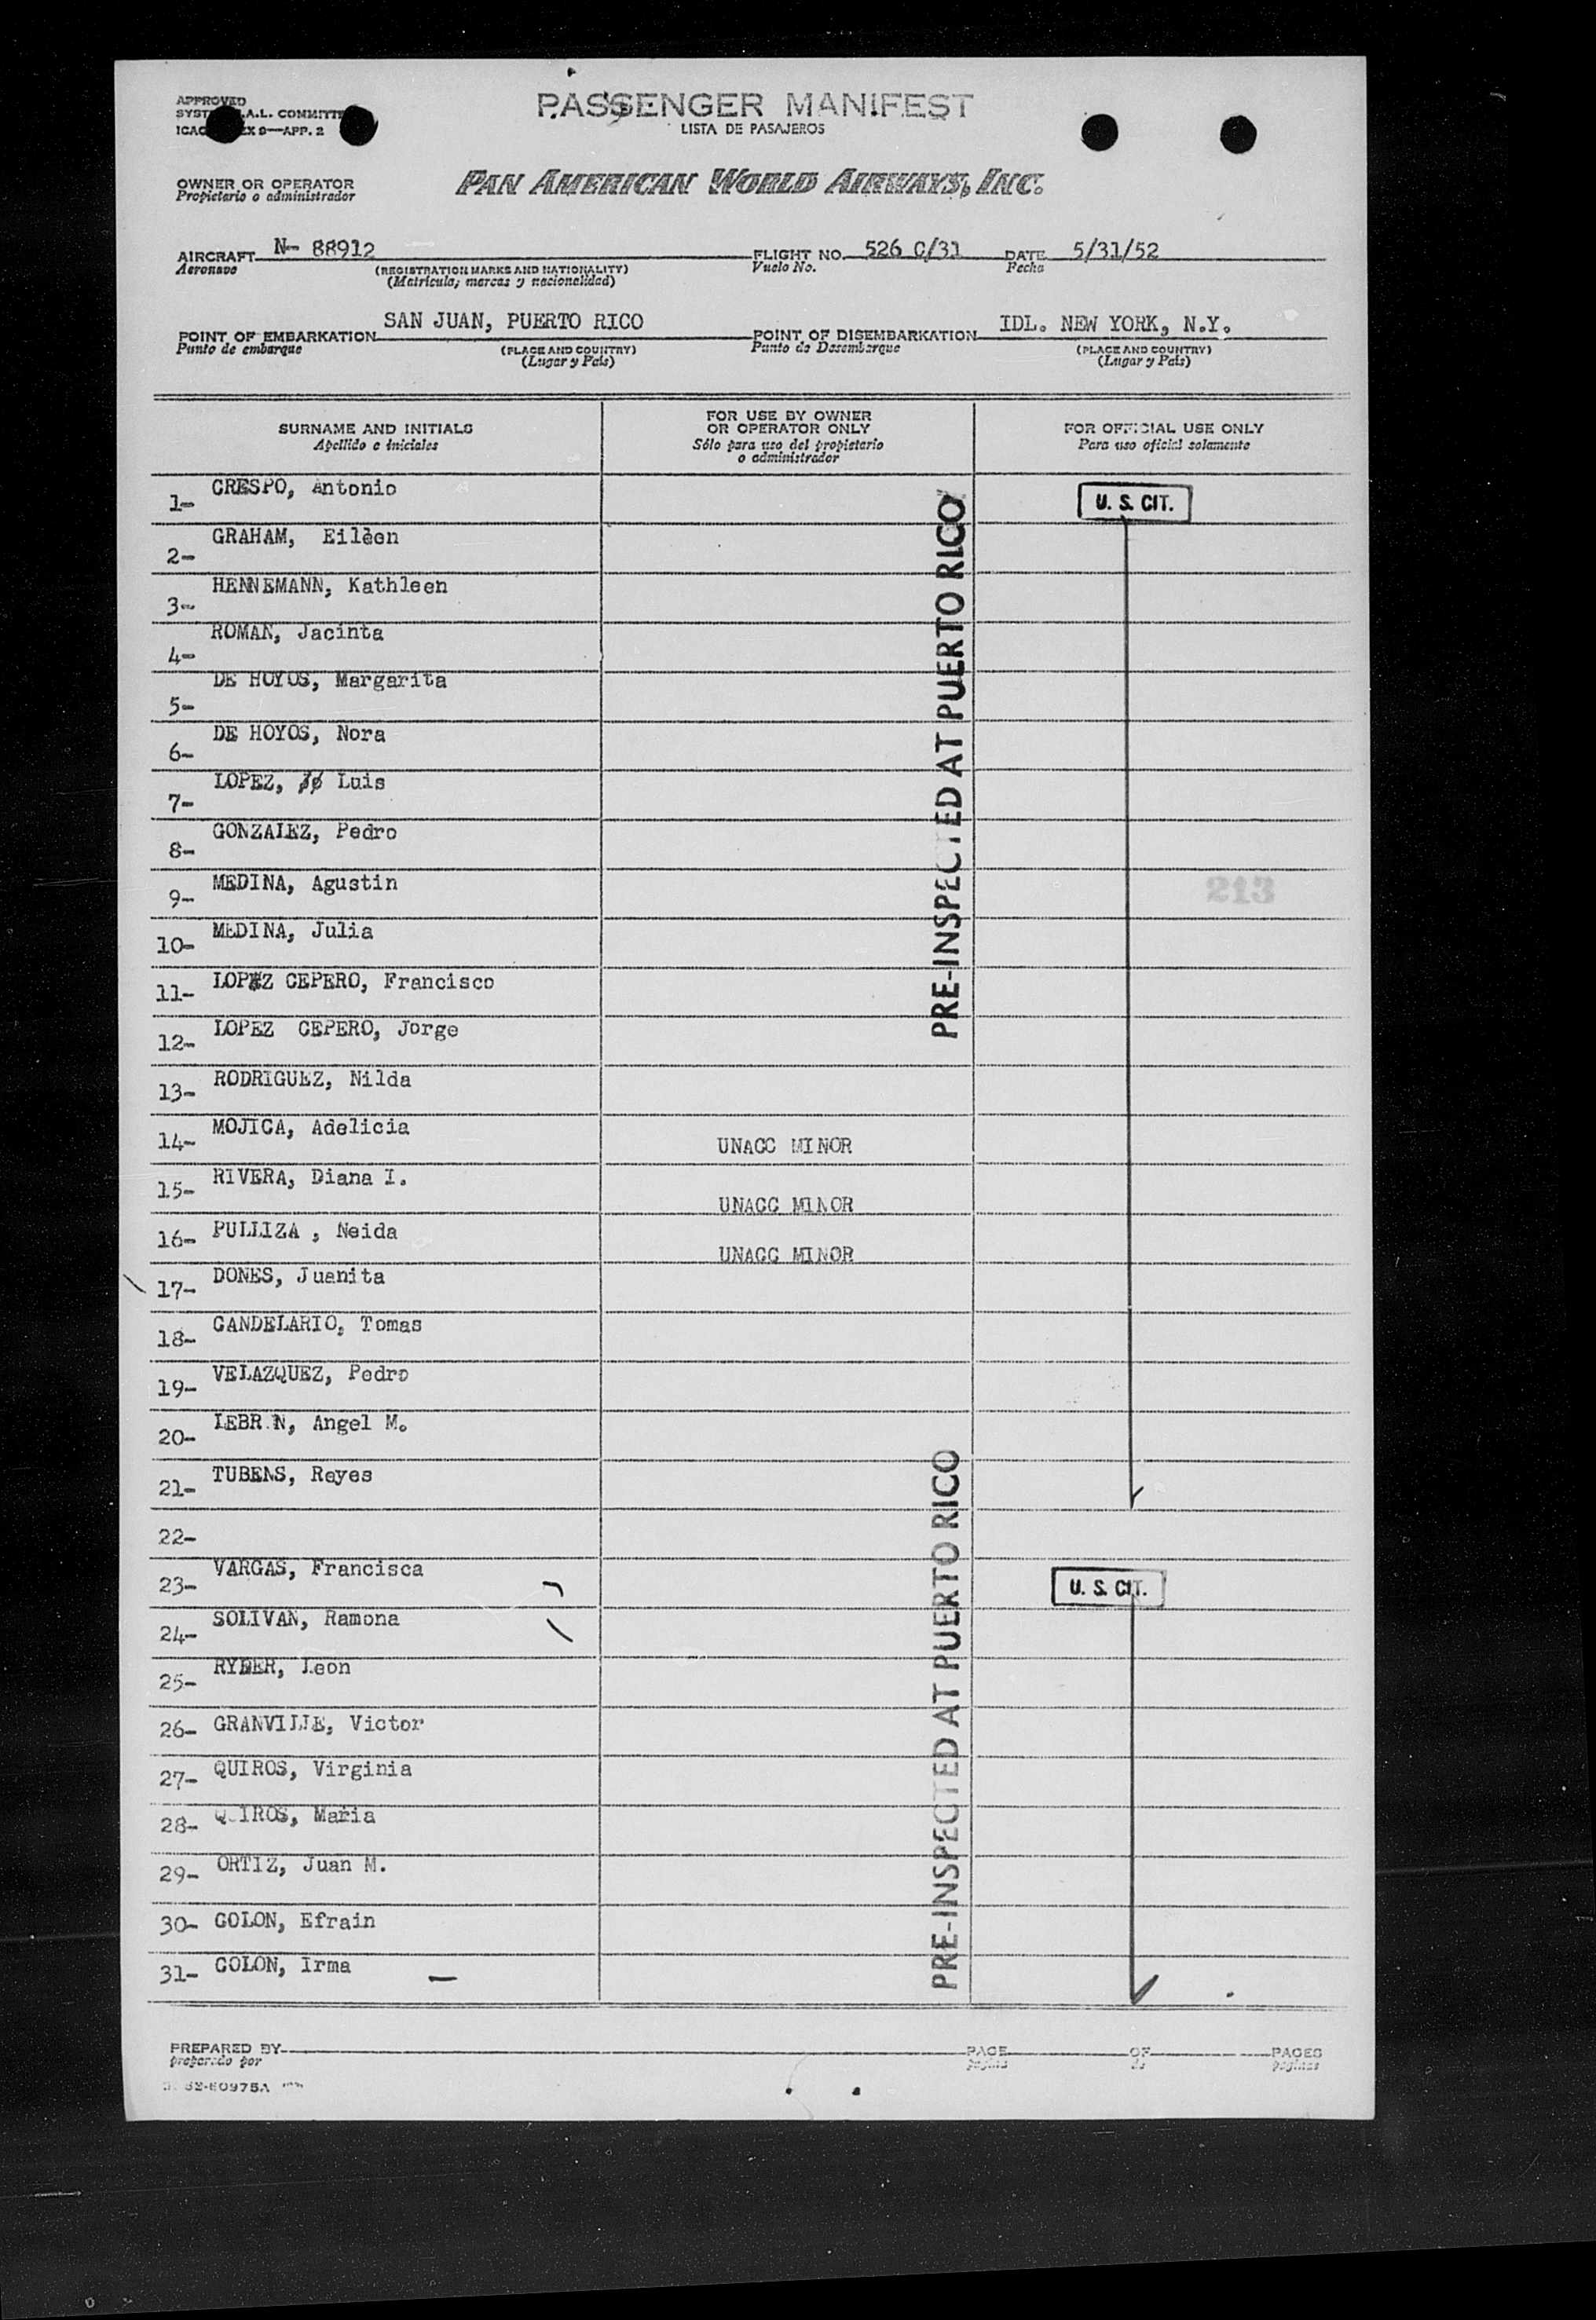 APPROVED
PASSENGER MANIFEST
LISTA DE PASAJEROS
OWNER OR OPERATOR
Propietario o administrador
PAN AMERICAN WORLD AIRWAYS, INC.
AIRCRAFT N- 88912 FLIGHT NO. 526 C/31 DATE 5/31/52
Aeronave (REGISTRATION MARKS AND NATIONALITY) Vuelo No. Fecha
(Matrícula, marcas y nacionalidad)
POINT OF EMBARKATION SAN JUAN, PUERTO RICO POINT OF DISEMBARKATION IDL. NEW YORK, N.Y.
Punto de embarque (PLACE AND COUNTRY) Punto de Desembarque (PLACE AND COUNTRY)
(Lugar y País) (Lugar y País)
SURNAME AND INITIALS
Apellido e iniciales
FOR USE BY OWNER
OR OPERATOR ONLY
Sólo para uso del propietario
o administrador
FOR OFFICIAL USE ONLY
Para uso oficial solamente
1- CRESPO, Antonio U. S. CIT.
2- GRAHAM, Eileen
3- HENNEMANN, Kathleen
4- ROMAN, Jacinta
5- DE HOYOS, Margarita
6- DE HOYOS, Nora
7- LOPEZ, Luis
8- GONZALEZ, Pedro
9- MEDINA, Agustin 213
10- MEDINA, Julia
11- LOPEZ CEPERO, Francisco
12- LOPEZ CEPERO, Jorge
13- RODRIGUEZ, Nilda
14- MOJICA, Adelicia UNACC MINOR
15- RIVERA, Diana I. UNACC MINOR
16- PULLIZA , Neida UNACC MINOR
17- DONES, Juanita
18- CANDELARIO, Tomas
19- VELAZQUEZ, Pedro
20- LEBR N, Angel M.
21- TUBENS, Reyes
22-
23- VARGAS, Francisca U. S. CIT.
24- SOLIVAN, Ramona
25- RYDER, Leon
26- GRANVILLE, Victor
27- QUIROS, Virginia
28- QUIROS, Maria
29- ORTIZ, Juan M.
30- COLON, Efrain
31- COLON, Irma
PRE-INSPECTED AT PUERTO RICO
PRE-INSPECTED AT PUERTO RICO
PREPARED BY PAGE OF PAGES
preparado por página de páginas